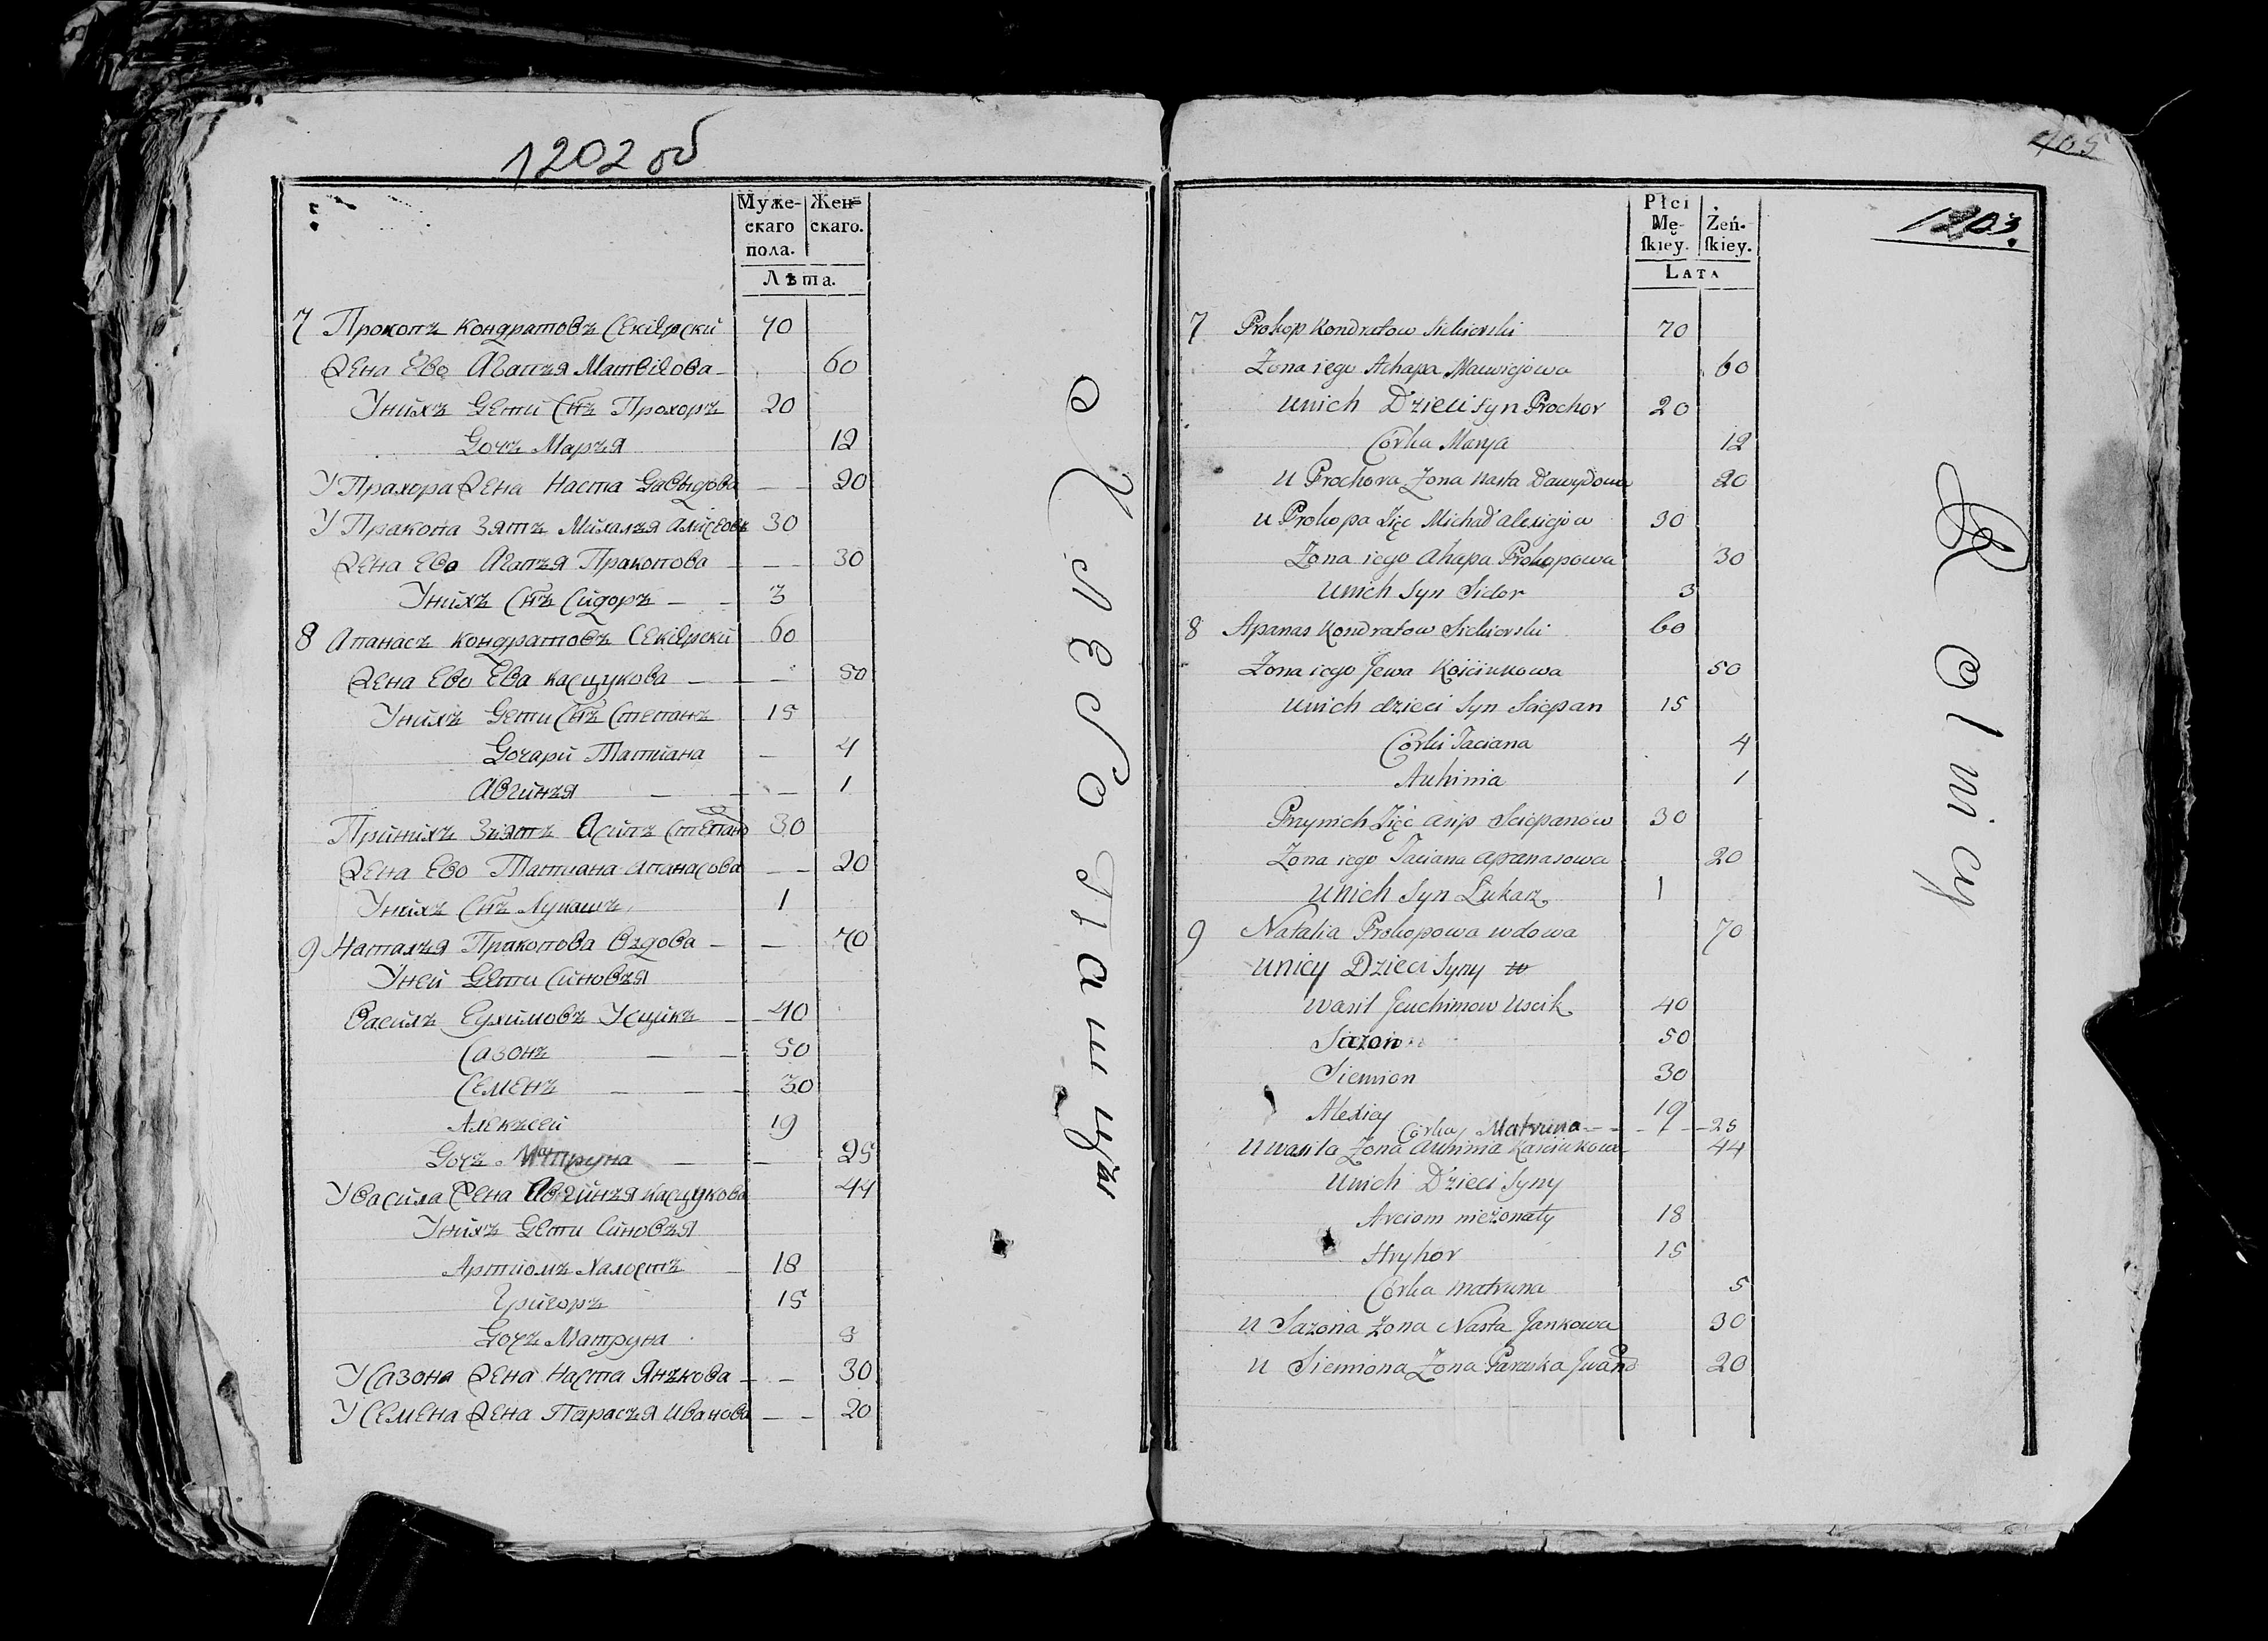 1202 об
Муже- Жен-
скаго скаго.
пола.
Лѣта.
7 Прокопъ Кондратовъ Секѣрскй 70
Жена Ево Агапъя Матвѣова 60
Унихъ Дети Снъ Прохоръ 20
Дочъ Маръя 12
У Прахора Жена Наста Давыдова 20
У Пракопа Зятъ Михалъя Алисеовъ 30
Жена Ево Агапъя Пракопова 30
Унихъ Снъ Сидоръ 3
8 Апанасъ Кондратовъ Секѣрскй 60
Жена Ево Ева Касцукова 50
Унихъ Дети Снъ Степанъ 15
Дочари Татиана 4
Авгинъя 1
Принихъ Зятъ Асипъ Степано 30
Жена Ево Татиана Апанасова 20
Унихъ Снъ Лукашъ 1
9 Наталъя Пракопова Вздова 70
Уней Дети Синовъя
Василъ Еухимовъ Усцикъ 40
Сазонъ 50
Семенъ 30
Алекъсей 19
Дочъ Матруна 25
У Васила Жена Авгинъя Касцукова 44
Унихъ Дети Синовъя
Артиомъ Халостъ 18
Григоръ 15
Дочъ Матруна 5
У Сазона Жена Наста Янъкова 30
У Семена Жена Парасъя Иванова 20
405
1203.
Płci
Mę- Żeń-
ſkiey. ſkiey.
LATA
7 Prokop Kondratow Sickierski 70
Zona iego Ahapa Maciejowa 60
unich Dzieci syn Prochor 20
Córka Marya 12
u Prochora Zona Nasta Dawydowa 20
u Prokopa Zięć Michał Alexiejow 30
Zona iego Ahapa Prokopowa 30
unich syn Sidor 3
8 Apanas Kondratow Sickierski 60
Zona iego Jewa Kościukowa 50
unich dzieci syn Sciepan 15
Córki Taciana 4
Auhinia 1
Przynich Zięć Asip Sciepanow 30
Zona iego Taciana Apanasowa 20
unich syn Łukasz 1
9 Natalia Prokopowa wdowa 70
uniey Dzieci Syny
Wasil Jeuchimow Uscik 40
Sazon 50
Siemion 30
Alexiey 19
Córka Matruna 25
u Wasila Zona Auhinia Kaściukowa 44
unich Dzieci Syny
Arciom nieżonaty 18
Hryhor 15
Córka Matruna 5
u Sazona Zona Nasta Jankowa 30
u Siemiona Zona Paraska Jwano 20